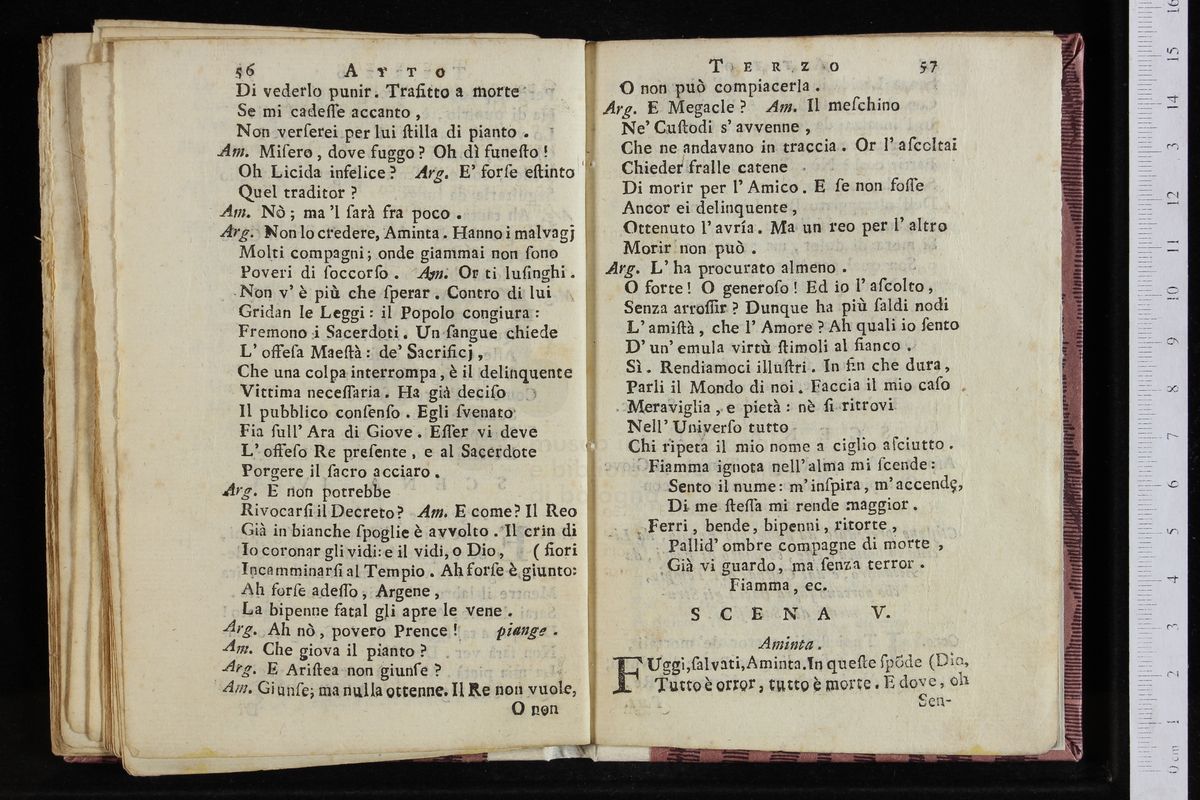 56 ATTO
Di vederlo punir. Trafitto a morte
Se mi cadeſſe accanto,
Non verſerei per lui ſtilla di pianto.
Am. Miſero, dove fuggo? Oh dì funeſto!
Oh Licida infelice? Arg. E' forſe eſtinto
Quel traditor?
Am. Nò; ma 'l ſarà fra poco.
Arg. Non lo credere, Aminta. Hanno i malvagj
Molti compagni; onde giammai non ſono
Poveri di ſoccorſo. Am. Or ti luſinghi.
Non v' è più che ſperar. Contro di lui
Gridan le Leggi: il Popolo congiura:
Fremono i Sacerdoti. Un ſangue chiede
L' offeſa Maeſtà: de' Sacrificj,
Che una colpa interrompa, è il delinquente
Vittima neceſſaria. Ha già deciſo
Il pubblico conſenſo. Egli ſvenato
Fia ſull' Ara di Giove. Eſſer vi deve
L' offeſo Re preſente, e al Sacerdote
Porgere il ſacro acciaro.
Arg. E non potrebbe
Rivocarſi il Decreto? Am. E come? Il Reo
Già in bianche ſpoglie è avvolto. Il crin di
Io coronar gli vidi: e il vidi, o Dio, (fiori
Incamminarſi al Tempio. Ah forſe è giunto:
Ah forſe adeſſo, Argene,
La bipenne fatal gli apre le vene.
Arg. Ah nò, povero Prence! piange.
Am. Che giova il pianto?
Arg. E Ariſtea non giunſe?
Am. Giunſe; ma nulla ottenne. Il Re non vuole,
O non
TERZO 57
O non può compiacerla.
Arg. E Megacle? Am. Il meſchino
Ne' Cuſtodi s' avvenne,
Che ne andavano in traccia. Or l' aſcoltai
Chieder fralle catene
Di morir per l' Amico. E ſe non foſſe
Ancor ei delinquente,
Ottenuto l' avría. Ma un reo per l' altro
Morir non può.
Arg. L' ha procurato almeno.
O forte! O generoſo! Ed io l' aſcolto,
Senza arroſſir? Dunque ha più ſaldi nodi
L' amiſtà, che l' Amore? Ah quali io ſento
D' un' emula virtù ſtimoli al fianco.
Sì. Rendiamoci illuſtri. In fin che dura,
Parli il Mondo di noi. Faccia il mio caſo
Meraviglia, e pietà: nè ſi ritrovi
Nell' Univerſo tutto
Chi ripeta il mio nome a ciglio aſciutto.
Fiamma ignota nell' alma mi ſcende:
Sento il nume: m' inſpira, m' accende,
Di me ſteſſa mi rende maggior.
Ferri, bende, bipenni, ritorte,
Pallid' ombre compagne di morte,
Già vi guardo, ma ſenza terror.
Fiamma, ec.
SCENA V.
Aminta.
FUggi, ſalvati, Aminta. In queſte ſpõde (Dio,
Tutto è orror, tutto è morte. E dove, oh
Sen-